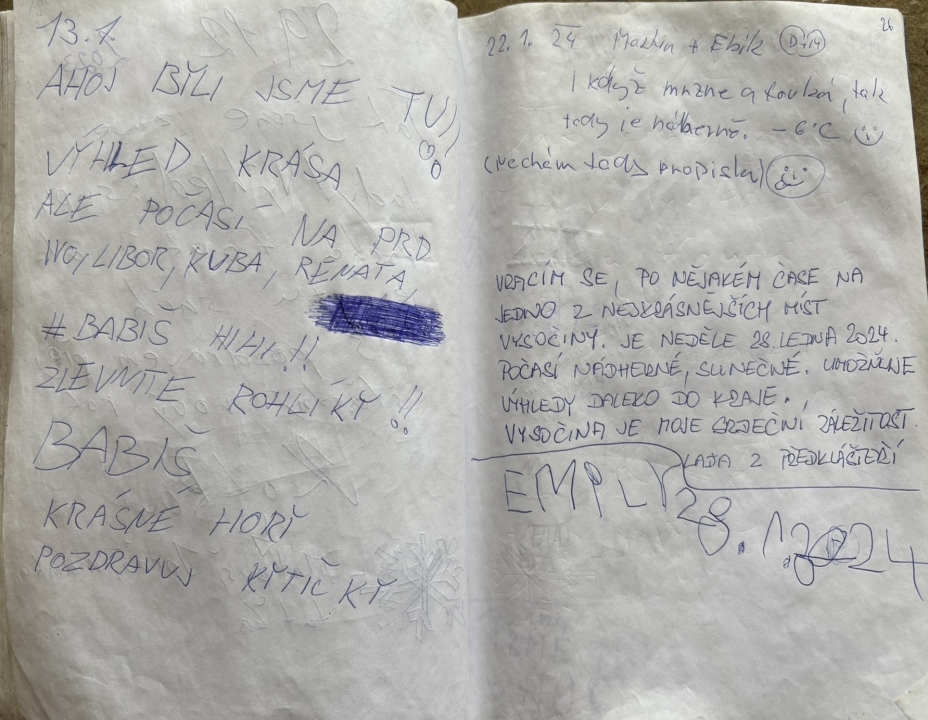 13.1.
AHOJ BĬLI JSME
TU!!
VÝHLED KRÁSA
ALE POČASÍ NA PRD
IVO, LIBOR, KUBA, RENATA
#BABIŠ HIHI!!
ZLEVNITE ROHLÍKY !!
BABIŠ
KRÁSNÉ HOŘÍ
POZDRAVUJ KYTIČKY
26
22.1. 24 Martin + Ebík
I když mrzne a fouká, tak
tady je nádherně. -6°C
(nechám tady propisku)
VRACÍM SE, PO NĚJAKÉM ČASE NA
JEDNO Z NEJKRÁSNĚJŠÍCH MÍST
VYSOČINY. JE NEDĚLE 28. LEDNA 2024.
POČASÍ NÁDHERNÉ, SLUNEČNÉ. UMOŽŇUJE
VÝHLEDY DALEKO DO KRAJE.
VYSOČINA JE MOJE SRDEČNÍ ZÁLEŽITOST.
LAĎA Z PŘEDKLÁŠTEŘÍ
EMPLY
28.1.2024